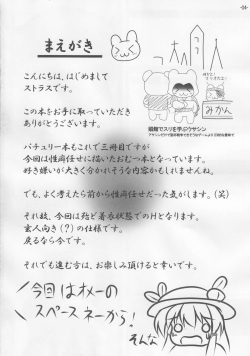 -04-
まえがき
こんにちは、はじめまして
ストラスです。
この本をお手に取っていただき
ありがとうございます。
みかん
パチュリー本もこれで三冊目ですが
今回は性癖任せに描いたおむつ本となっています。
好き嫌いが大きく分かれそうな内容かもしれませんね。
でも、よく考えたら前から性癖任せだった気がします。(笑)
それ故、今回は殆ど着衣状態でのHとなります。
玄人向き(?)の仕様です。
戻るなら今です。
それでも進む方は、お楽しみ頂けると幸いです。
今回はオメーの
スペースネーから!
そんな